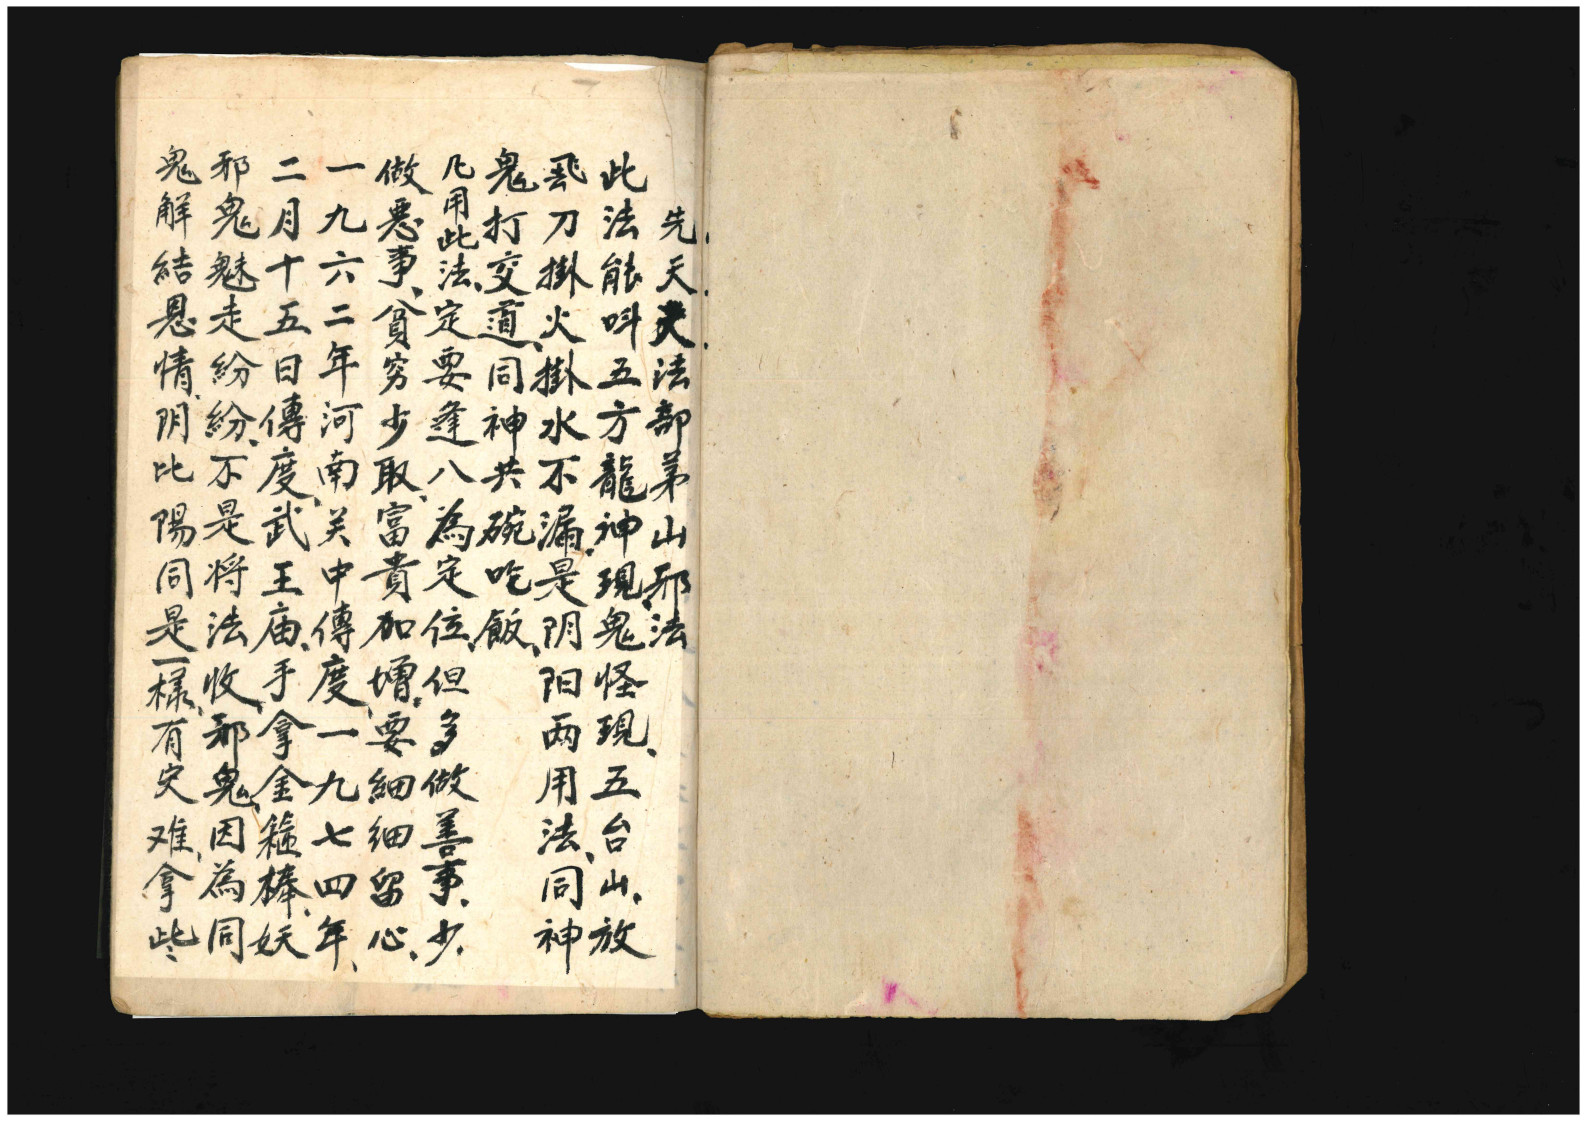 先天天法部茅山邪法
此法能呌五方龍神現鬼怪現、五台山、放
飛刀掛火掛水不漏、是阴阳两用法、同神
鬼打交道、同神共碗吃飯、
凡用此法、定要逢八為定位、但多做善事、少、
做惡事、貧穷少取、富貴加增、要細細留心、
一九六二年河南关中傳度、一九七四年、
二月十五日傳度、武王庙、手拿金箍棒、妖
邪鬼魅走紛紛、不是将法收、邪鬼、因為同
鬼解結恩情、阴比陽同是一様、有灾难、拿些、